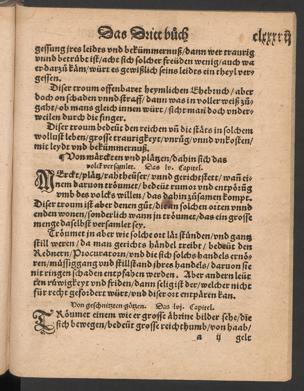 Das Dritt bůch clxxxiij
gessung jres leidts vnd bekümmernuß/dann wer traurig
vnnd betrübt ist/acht sich solcher freüden wenig/auch wa
er darzů käm/würt es gewißlich seins leidts ein theyl ver-
gessen.
Diser troum offenbaret heymlichen Ehebruch/aber
doch on schaden vnnd straff/dann was in voller weiß zů-
gaht/ob mans gleich innen würt/sicht man doch vnder-
weilen durch die finger.
Diser troum bedeüt den reichen vñ die stäts in solchem
wollust leben/grosse traurigkeyt/vnrůg/vnnd vnkosten/
mit leydt vnd bekümmernuß.
Von märckten vnd plätzen/dahin sich das
volck versamlet. Das lv. Capitel.
MErckt/plätz/rahtheüser/vnnd gerichstett/wañ ei-
nem daruon tröumet/bedeüt rumor vnd entpörũg
vnd des volcks willen/das dahin zůsamen kompt.
Diser troum ist aber denen gůt/die an solchen orten vnnd
enden wonen/sonderlich wann in tröumet/das ein grosse
menge daselbst versamlet sey.
Tröumet in aber wie solche ort lär stůnden/vnd gantz
still weren/da man gerichts händel treibt/bedeüt den
Rednern/Procuratorn/vnd die sich solchs handels ernö-
ren/müssiggang vnd stillstand jhres handels/daruon sie
nit ringen schaden entpfahen werden. Aber andern leüt
ten růwigkeyt vnd friden/dann selig ist der/welcher nicht
für recht gefordert würt/vnd diser ort entpären kan.
Von geschnitzten götzen. Das lvj. Capitel.
TRöumet einem wie er grosse ährine bilder sehe/die
sich bewegen/bedeüt grosse reichthumb/von haab/
a ij gelt